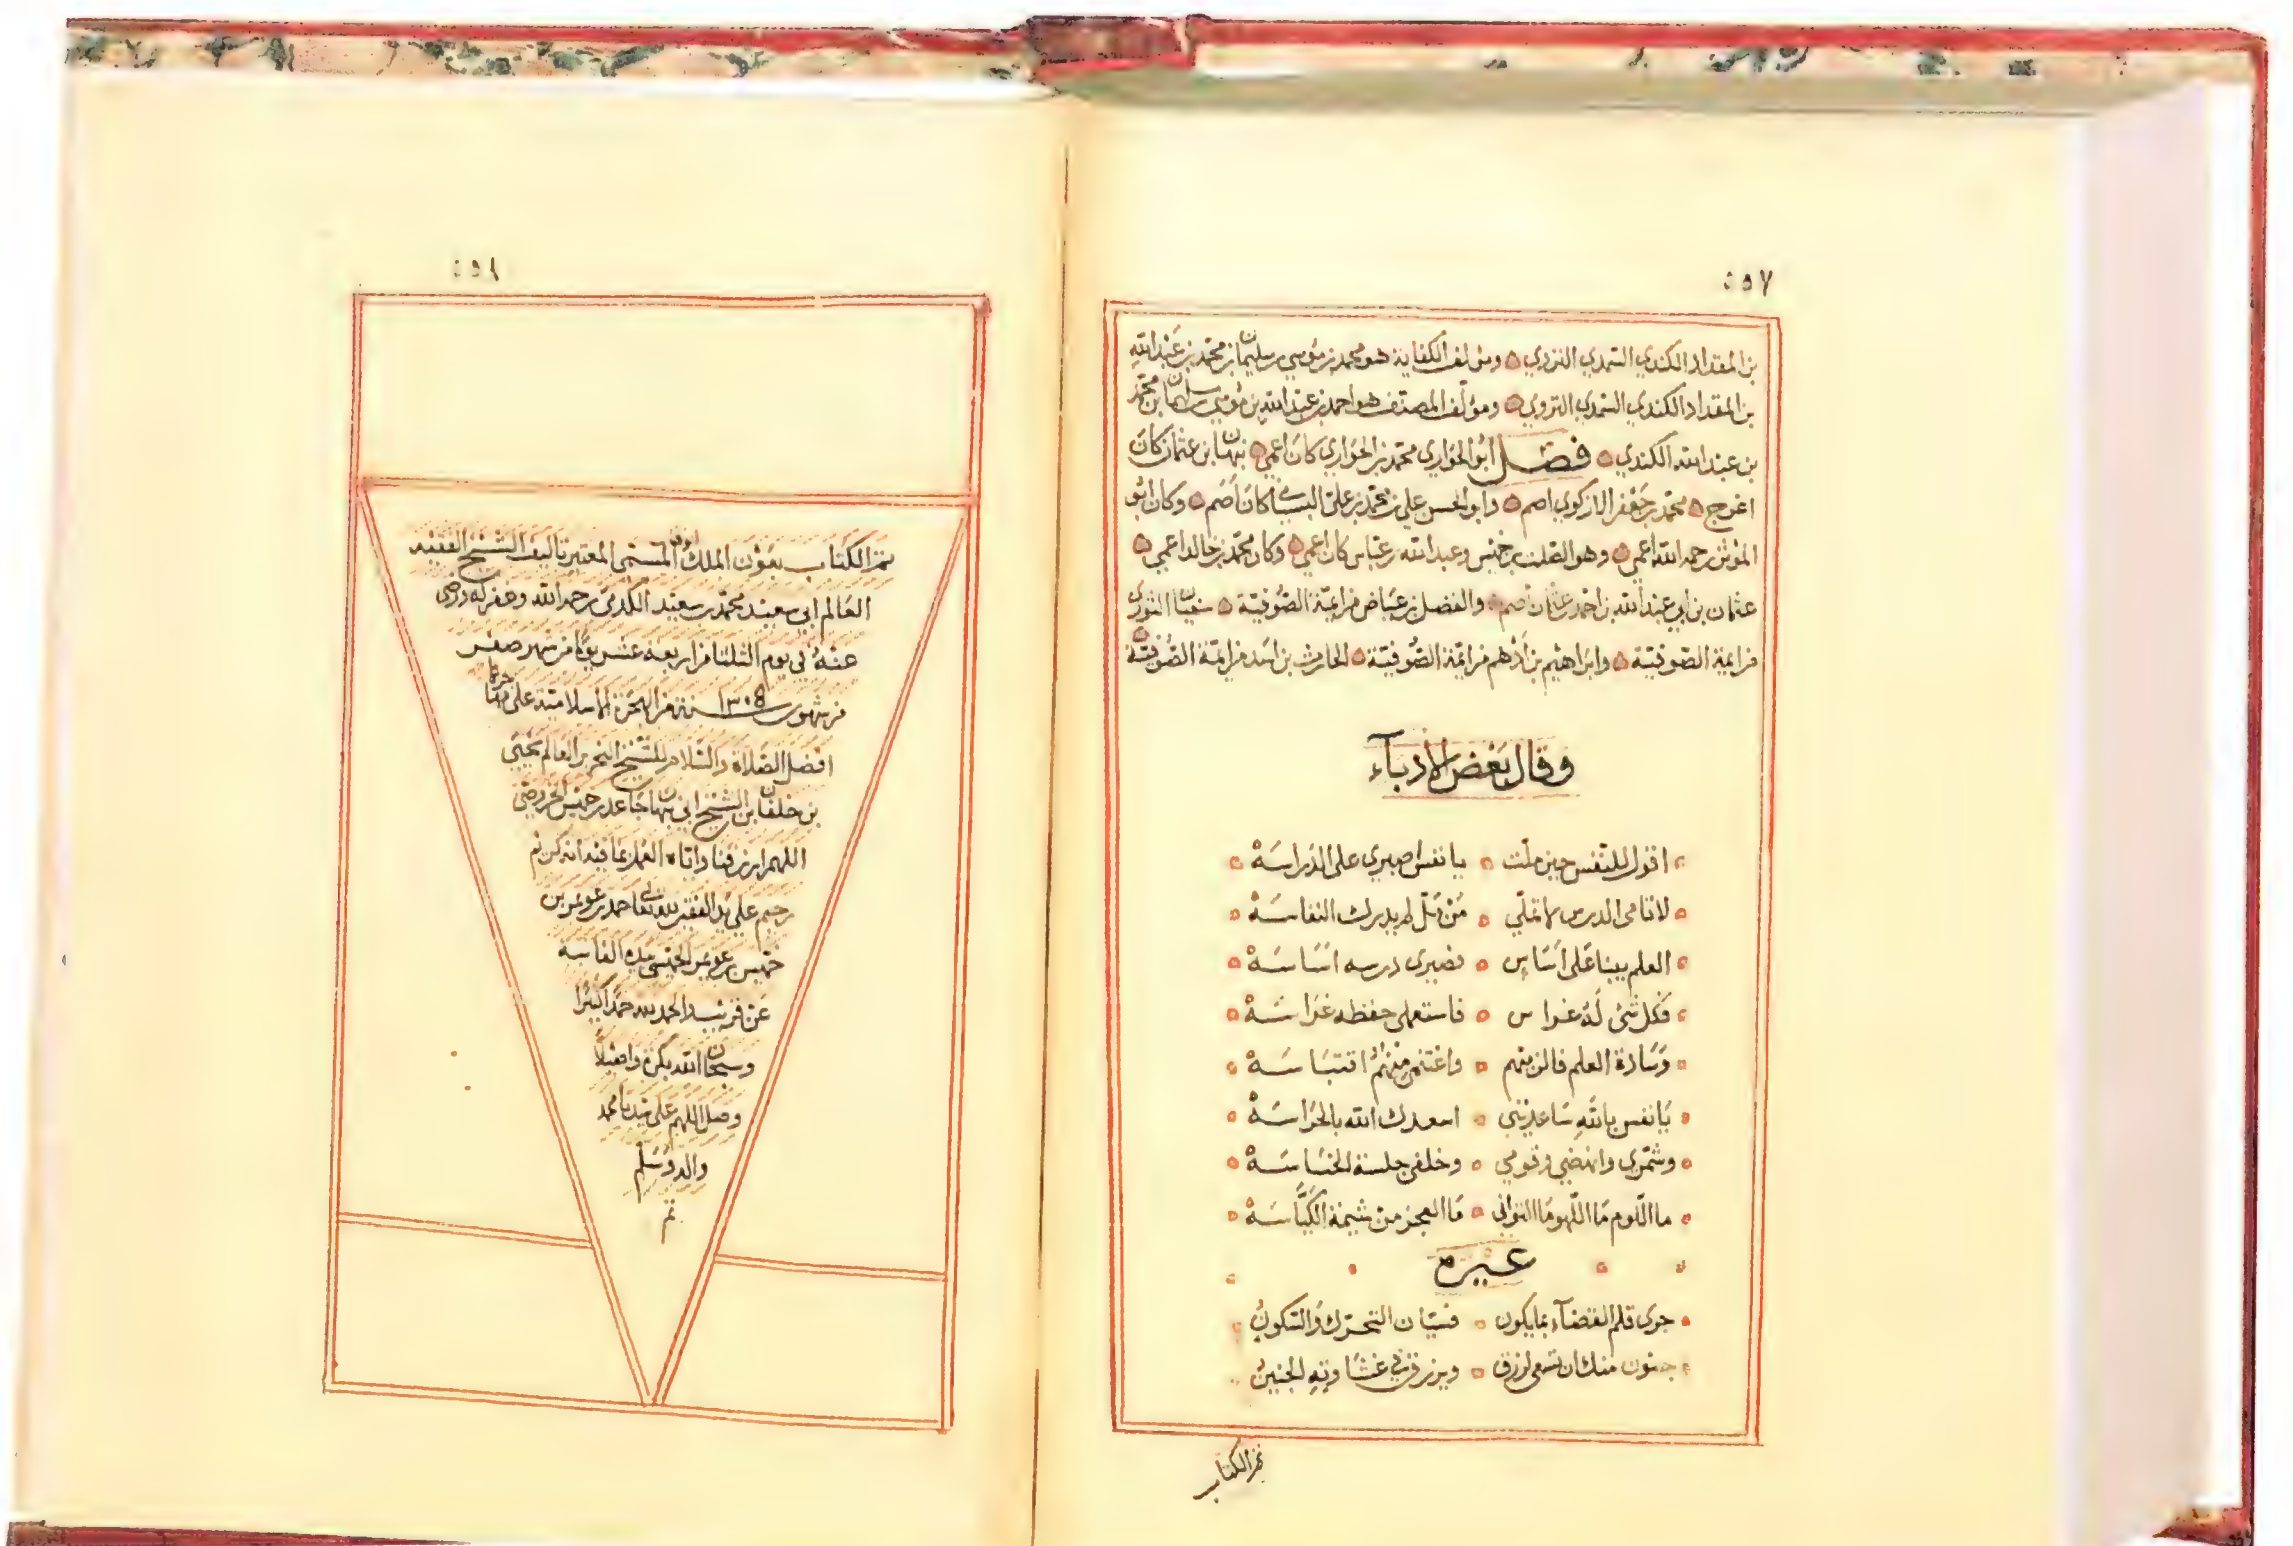 ٥٥٧
بن المقداد الكندي السمدي النزوي ومؤلف الكفاية هو محمد بن موسى بن سليمان بن محمد بن عبد الله
بن المقداد الكندي السمدي النزوي ومؤلف المصنف هو احمد بن عبد الله بن موسى بن سليمان بن محمد
بن عبد الله الكندي فصل ابو الحواري محمد بن الحواري كان اعمى نبهان بن عثمان كان
اعرج محمد بن جعفر الازكوي اصم وابو الحسن علي بن محمد بن علي البسياني كان اصم وكان ابو
المؤثر رحمه الله اعمى وهو الصلت بن خميس وعبد الله بن عباس كان اعمى وكان محمد بن خالد اعمى
عثمان بن ابي عبد الله بن احمد عثمان اصم والفضل بن عياض من ايمة الصوفية سفيان الثوري
من ايمة الصوفية وابراهيم بن ادهم من ايمة الصوفية الحارث بن اسد من ايمة الصوفية
وقال بعض الأدباء
اقول للنفس حين ملت يا نفس اصبري على الدراسة
لا تسامي الدرس لا تملي من مل لم يدرك النفاسة
العلم يبنا على اساس فصيري درسه اساسه
فكل شئ له غراس فاستعملي حفظه غراسه
وسادة العلم فالزميهم واغتنمي منهم اقتباسه
يا نفس بالله ساعديني اسعدك الله بالحراسه
وشمري وانهضي وقومي وخلفي جلسة الخساسه
ما اللوم ما اللهو ما التواني ما العجز من شيمة الكياسه
غيره
جرى قلم القضآء بما يكون فسيان التحرك والسكون
جنون منك ان تسعى لرزق ويرزق في غشاوته الجنين
تم الكتاب
٥٥٨
تم الكتاب بعون الملك الوهاب المسمى المعتبر تاليف الشيخ الفقيه
العالم ابي سعيد محمد بن سعيد الكدمي رحمه الله وغفر له ورضي
عنه في يوم الثلثا من اربعة عشر يوما من شهر صفر
من شهور سنة ١٣٠٥ من الهجرة الاسلامية على مهاجرها
افضل الصلاة والسلام للشيخ النحرير العالم يحيى
بن خلفان بن الشيخ ابي نبهان جاعد بن خميس الخروصي
اللهم ارزقنا واياه العمل بما فيه انه كريم
رحيم على يد الفقير لله تعالى احمد بن عويمر بن
خميس بن عويمر الخميسي بيده الفانية
عن قريب والحمد لله حمدا كثيرا
وسبحان الله بكرة واصيلا
وصل اللهم على سيدنا محمد
واله وسلم
تم